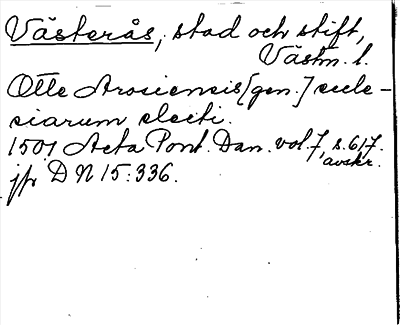 Västerås, stad och stift,
Västm. l.
Otte Arosiensis [gen.] eccle-
siarum electi.
1501 Acta Pont. Dan. vol. 7, s. 617.
avskr.
jfr DN 15:336.